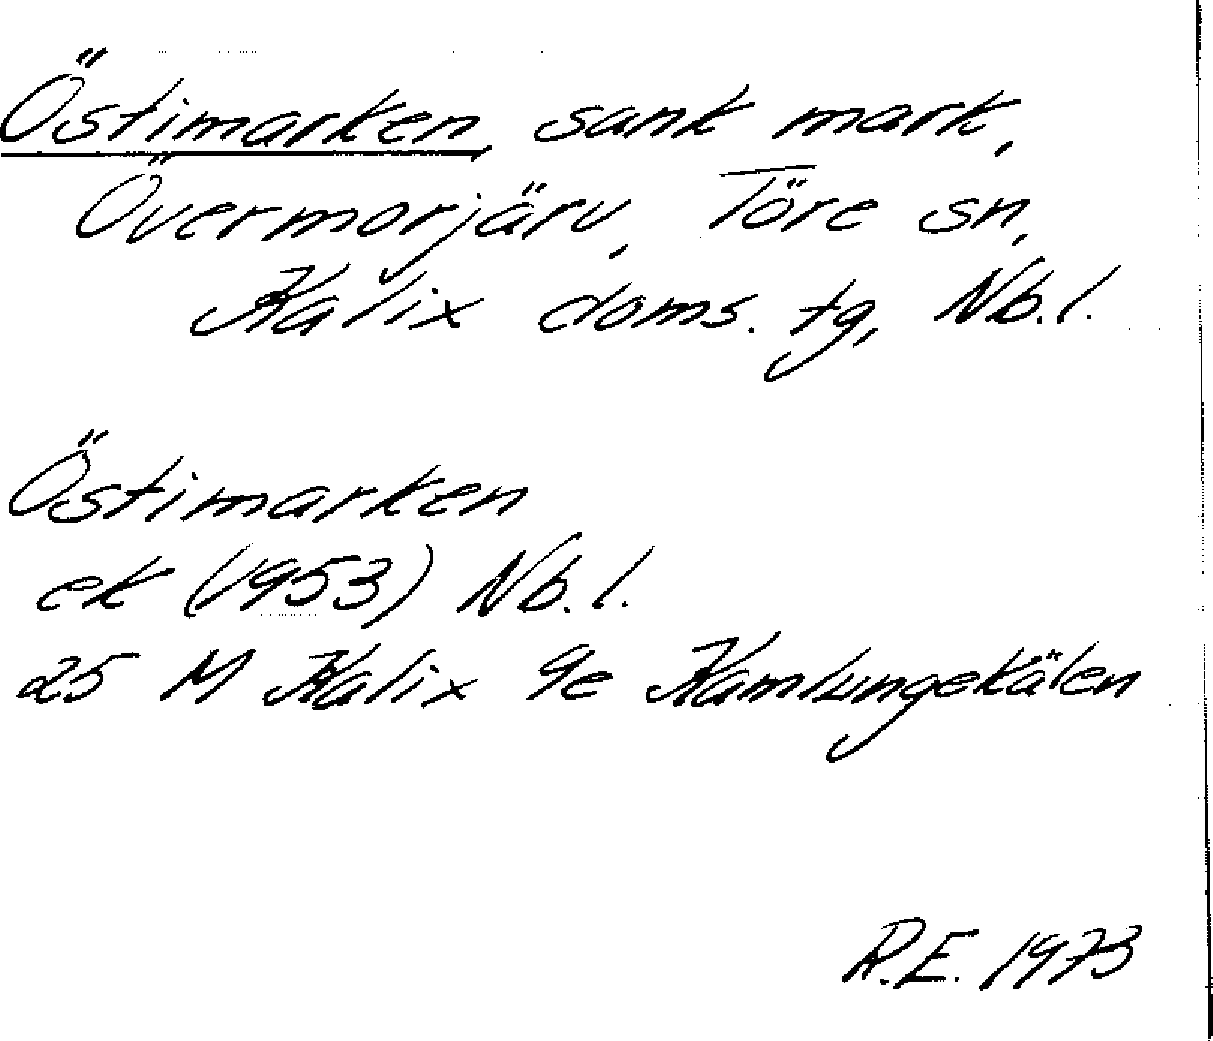 Östimarken, sank mark,
Övermorjärv, Töre sn,
Kalix doms. tg, Nb.l.
Östimarken
ek (1953) Nb.l.
25 M Kalix 9e Kamlungekälen
R.E. 1973